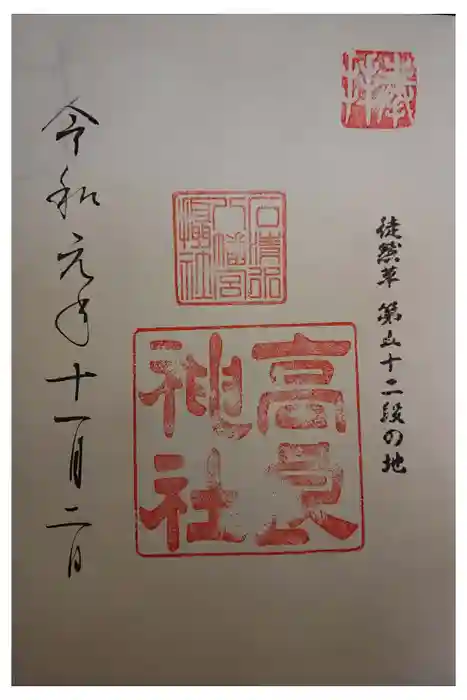 奉拝
徒然草 第五十二段の地
石清水
八幡宮
攝社
高良
神社
令和元年十一月二日